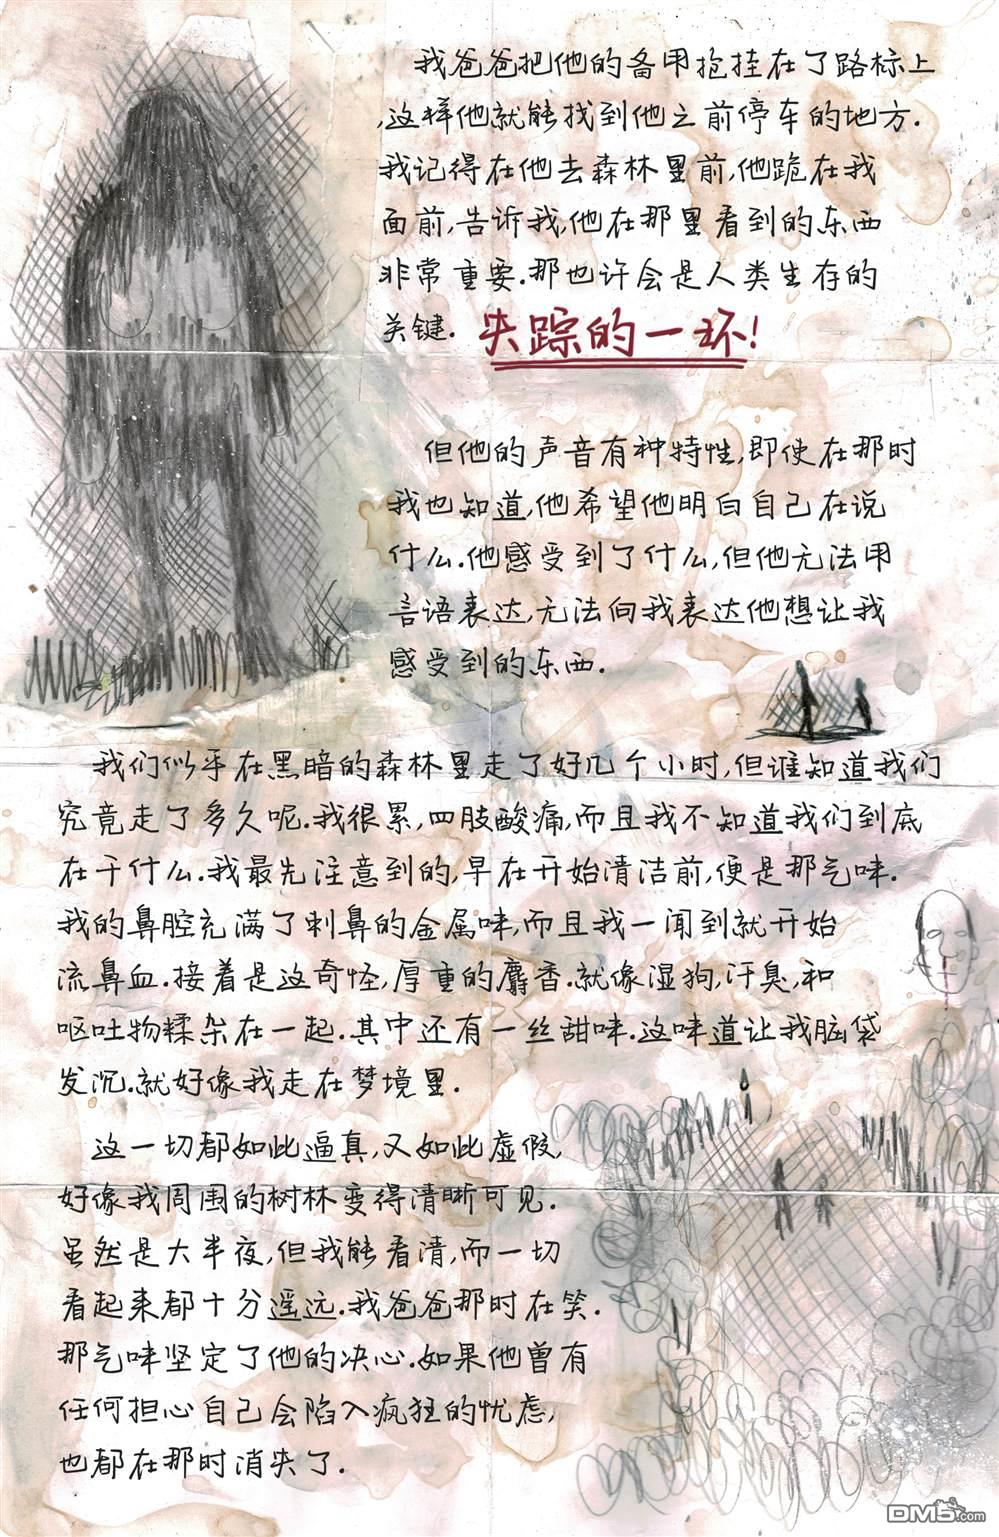 我爸爸把他的备用袍挂在了路标上
,这样他就能找到他之前停车的地方.
我记得在他去森林里前,他跪在我
面前,告诉我,他在那里看到的东西
非常重要.那也许会是人类生存的
关键. 失踪的一环!
但他的声音有种特性,即使在那时
我也知道,他希望他明白自己在说
什么.他感受到了什么,但他无法用
言语表达,无法向我表达他想让我
感受到的东西.
我们似乎在黑暗的森林里走了好几个小时,但谁知道我们
究竟走了多久呢.我很累,四肢酸痛,而且我不知道我们到底
在干什么.我最先注意到的,早在开始清洁前,便是那气味.
我的鼻腔充满了刺鼻的金属味,而且我一闻到就开始
流鼻血.接着是这奇怪,厚重的麝香.就像湿狗,汗臭,和
呕吐物糅杂在一起.其中还有一丝甜味.这味道让我脑袋
发沉.就好像我走在梦境里.
这一切都如此逼真,又如此虚假,
好像我周围的树林变得清晰可见.
虽然是大半夜,但我能看清,而一切
看起来都十分遥远.我爸爸那时在笑.
那气味坚定了他的决心.如果他曾有
任何担心自己会陷入疯狂的忧虑,
也都在那时消失了.
DM5.com